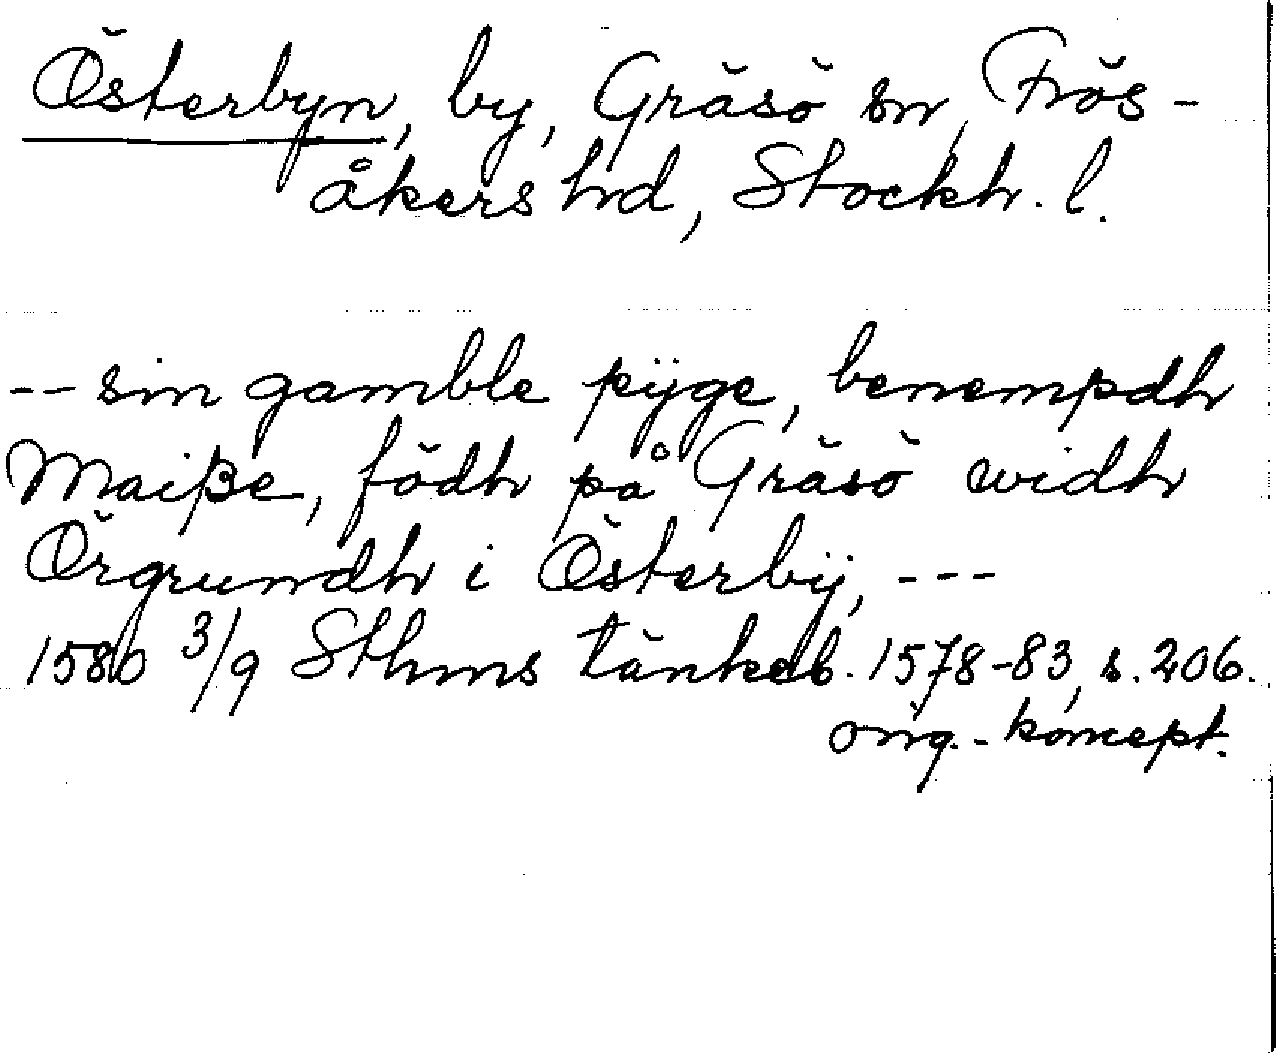 Österbyn, by, Gräsö sn, Frös-
åkers hd, Stockh. l.
-- sin gamble pÿge, benempdh
Maiße, födh på Gräsö widh
Örgrundh i Österbÿ, ---
1580 3/9 Sthms tänkeb. 1578-83, s. 206.
orig.-koncept.